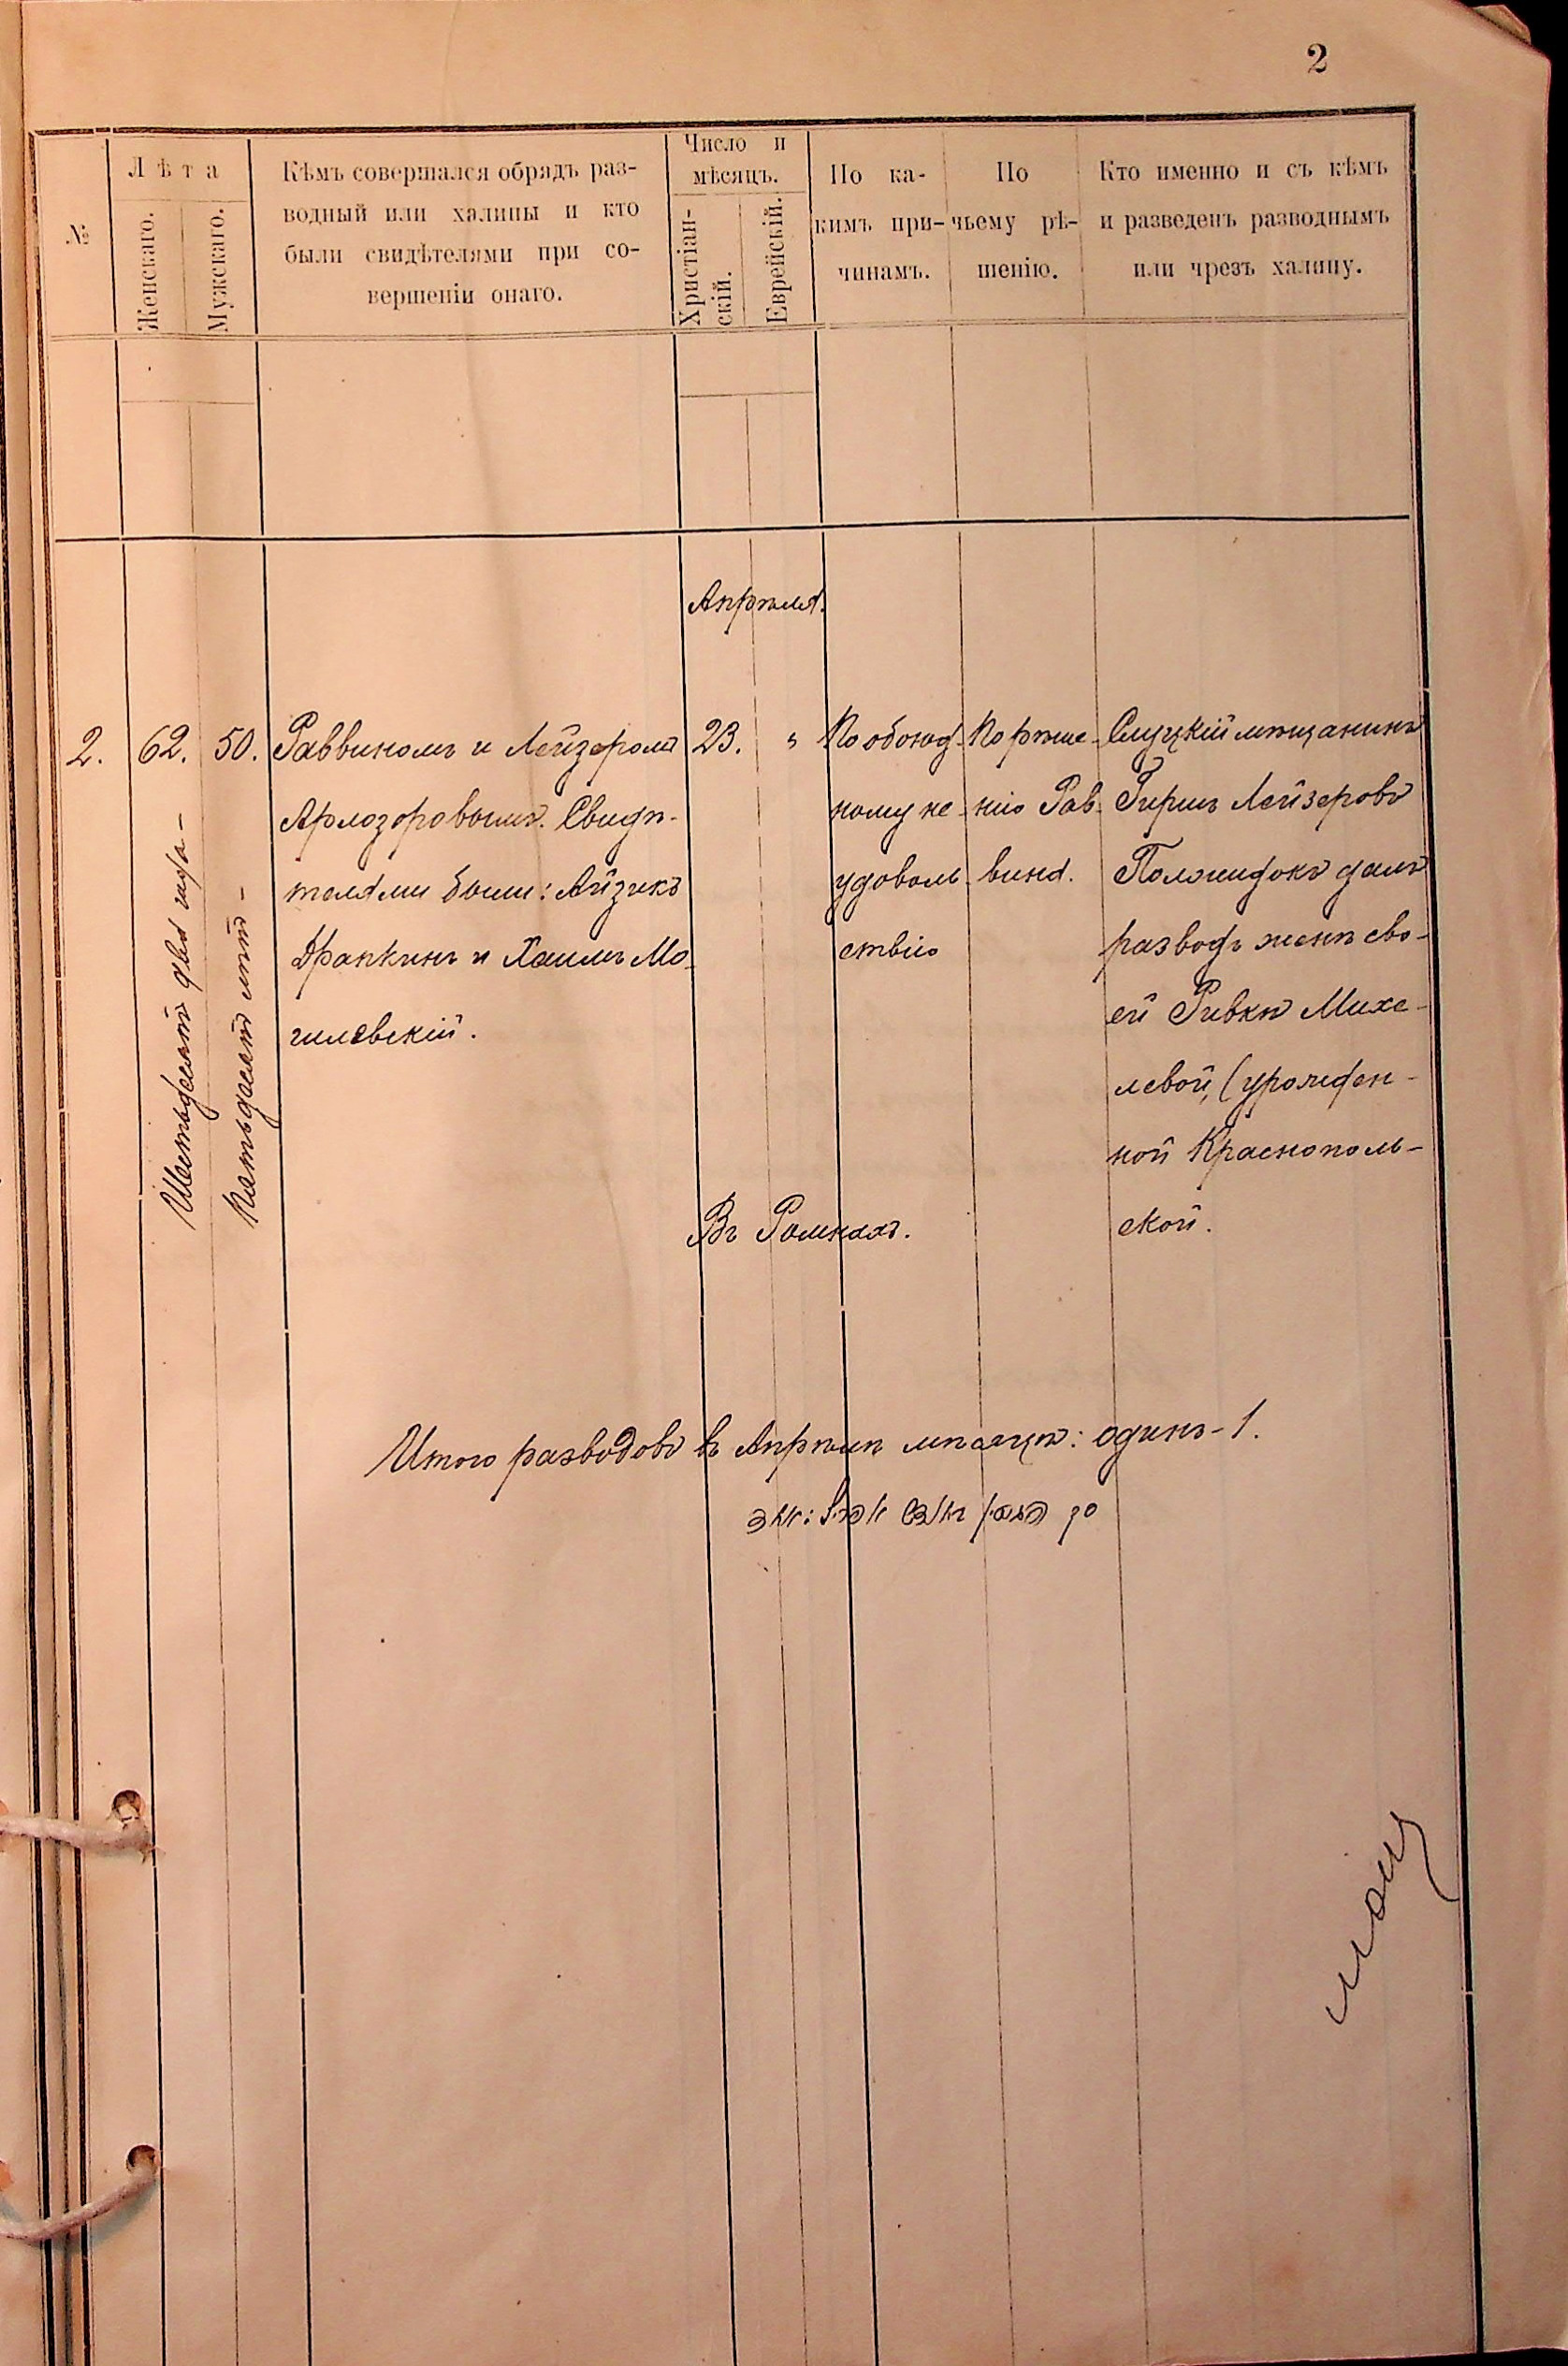 2
№
Лѣта
Женскаго.
Мужскаго.
Кѣмъ совершался обрядъ раз-
водный или халицы и кто
были свидѣтелями при со-
вершеніи онаго.
Число и
мѣсяцъ.
Христіан-
скій.
Еврейскій.
По ка-
кимъ при-
чинамъ.
По
чьему рѣ-
шенію.
Кто именно и съ кѣмъ
и разведенъ разводнымъ
или чрезъ халицу.
Апрѣля.
2.
62.
Шестьдесятъ два года –
50.
Пятьдесятъ лѣтъ –
Раввиномъ и Лейзеромъ
Арлозоровымъ. Свидѣ-
телями были: Айзикъ
Драпкинъ и Хаимъ Мо-
гилевскій.
23.
"
По обоюд-
ному не-
удоволь-
ствію
По рѣше-
нію Рав-
вина.
Слуцкій мѣщанинъ
Гиршъ Лейзеровъ
далъ
разводъ женѣ сво-
ей Ривкѣ Михе-
левой, (урожден-
ной Краснополь-
ской.
Въ Ромнахъ.
Итого разводовъ въ Апрѣлѣ мѣсяцѣ: одинъ-1.